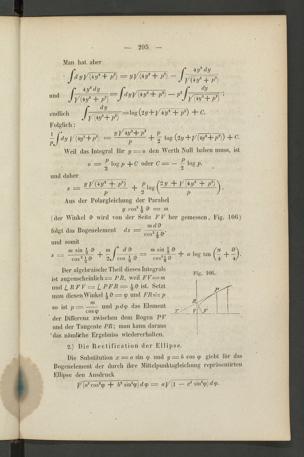 — 295 —
Man hat aber
∫dy√(4y² + p²) = y√(4y² + p²) − ∫ 4y² dy / √(4y² + p²)
und ∫ 4y² dy / √(4y² + p²) = ∫dy√(4y² + p²) − p² ∫ dy / √(4y² + p²) ;
endlich ∫ dy / √(4y² + p²) = log (2y + √(4y² + p²)) + C.
Folglich:
1/p ∫dy √(4y² + p²) = y√(4y² + p²) / p + p/2 log (2y + √(4y² + p²)) + C.
Weil das Integral für y = o den Werth Null haben muss, ist
o = p/2 log p + C oder C = − p/2 log p,
und daher
s = y√(4y² + p²) / p + p/2 log (2y + √(4y² + p²) / p).
Aus der Polargleichung der Parabel
y cos² ½ ϑ = m
(der Winkel ϑ wird von der Seite FV her gemessen, Fig. 106)
folgt das Bogenelement ds = m dϑ / cos³ ½ ϑ,
und somit
s = m sin ½ ϑ / cos² ½ ϑ + m/2 ∫ dϑ / cos ½ ϑ = m sin ½ ϑ / cos² ½ ϑ + m log tan (π/4 + ϑ/4).
Der algebraische Theil dieses Integrals
ist augenscheinlich = PR, weil FV = m
und ∠RVF = ∠PFR = ½ ϑ ist. Setzt
man diesen Winkel ½ ϑ = φ und FR = p
so ist p = m / cos φ und p dφ das Element
der Differenz zwischen dem Bogen PV
und der Tangente PR; man kann daraus
das nämliche Ergebniss wiedererhalten.
Fig. 106.
2.) Die Rectification der Ellipse.
Die Substitution x = a sin φ und y = b cos φ giebt für das
Bogenelement der durch ihre Mittelpunktsgleichung repräsentirten
Ellipse den Ausdruck
√(a² cos²φ + b² sin²φ) dφ = a√(1 − e² sin²φ) dφ.